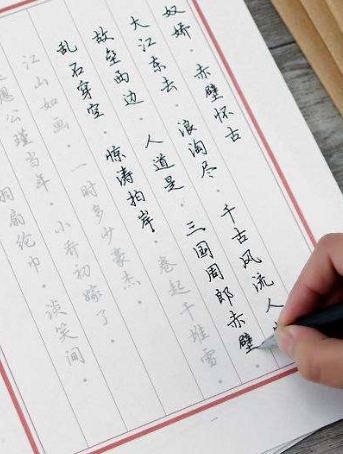 奴娇 赤壁怀古
大江东去。浪淘尽。千古风流人
故垒西边。人道是。三国周郎赤壁
乱石穿空。惊涛拍岸。卷起千堆雪。
江山如画。一时多少豪杰。
想公瑾当年。小乔初嫁了。
扇纶巾。谈笑间。